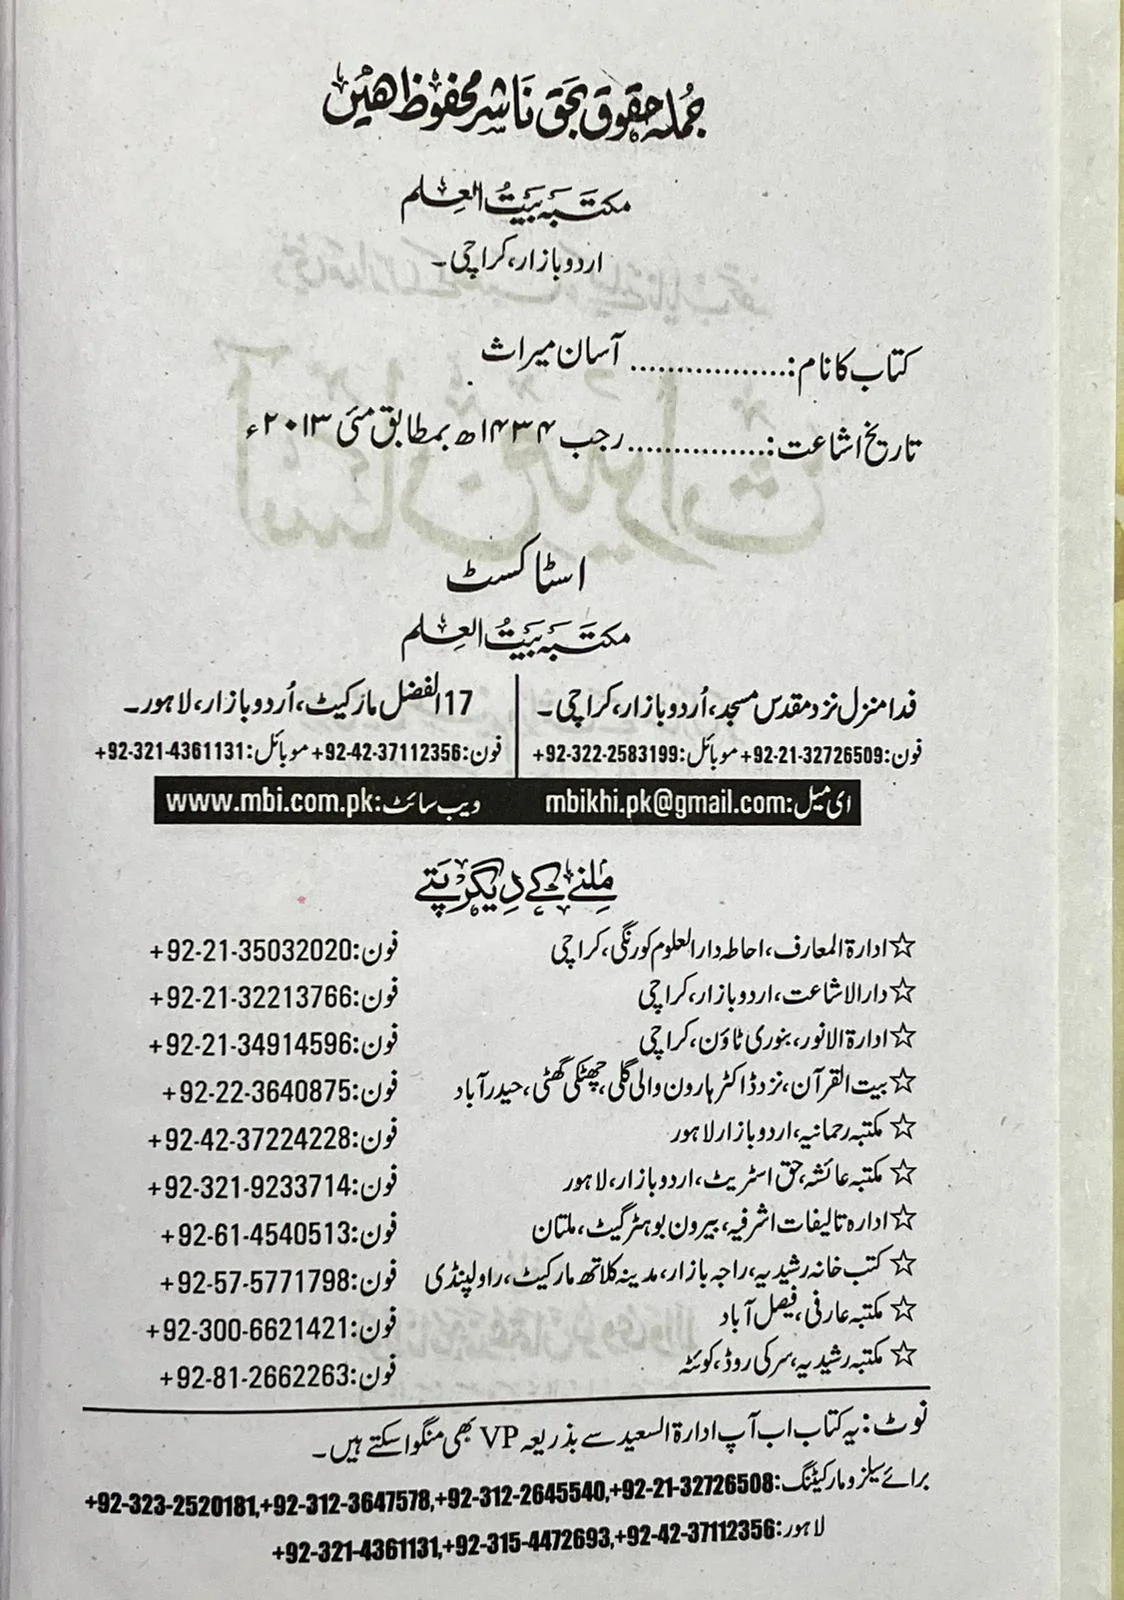 جملہ حقوق بحق ناشر محفوظ ہیں
مکتبہ بیت العلم
اردو بازار، کراچی۔
کتاب کا نام:................. آسان میراث
تاریخ اشاعت:............... رجب ۱۴۳۴ھ بمطابق مئی ۲۰۱۳ء
اسٹاکسٹ
مکتبہ بیت العلم
فدا منزل نزد مقدس مسجد، اُردو بازار، کراچی۔
فون:+92-21-32726509 موبائل:+92-322-2583199
17 الفضل مارکیٹ، اُردو بازار، لاہور۔
فون:+92-42-37112356 موبائل:+92-321-4361131
ای میل:mbikhi.pk@gmail.com ویب سائٹ:www.mbi.com.pk
ملنے کے دیگر پتے
☆ ادارۃ المعارف، احاطہ دارالعلوم کورنگی، کراچی فون:+92-21-35032020
☆ دارالاشاعت، اردو بازار، کراچی فون:+92-21-32213766
☆ ادارۃ الانور، بنوری ٹاؤن، کراچی فون:+92-21-34914596
☆ بیت القرآن، نزد ڈاکٹر ہارون والی گلی، چھٹکی گھٹی، حیدرآباد فون:+92-22-3640875
☆ مکتبہ رحمانیہ، اردو بازار لاہور فون:+92-42-37224228
☆ مکتبہ عائشہ، حق اسٹریٹ، اردو بازار، لاہور فون:+92-321-9233714
☆ ادارہ تالیفات اشرفیہ، بیرون بوہڑ گیٹ، ملتان فون:+92-61-4540513
☆ کتب خانہ رشیدیہ، راجہ بازار، مدینہ کلاتھ مارکیٹ، راولپنڈی فون:+92-57-5771798
☆ مکتبہ عارفی، فیصل آباد فون:+92-300-6621421
☆ مکتبہ رشیدیہ، سرکی روڈ، کوئٹہ فون:+92-81-2662263
نوٹ: یہ کتاب اب آپ ادارۃ السعید سے بذریعہ VP بھی منگوا سکتے ہیں۔
برائے سیلز و مارکیٹنگ:+92-323-2520181,+92-312-3647578,+92-312-2645540,+92-21-32726508
لاہور:+92-321-4361131,+92-315-4472693,+92-42-37112356